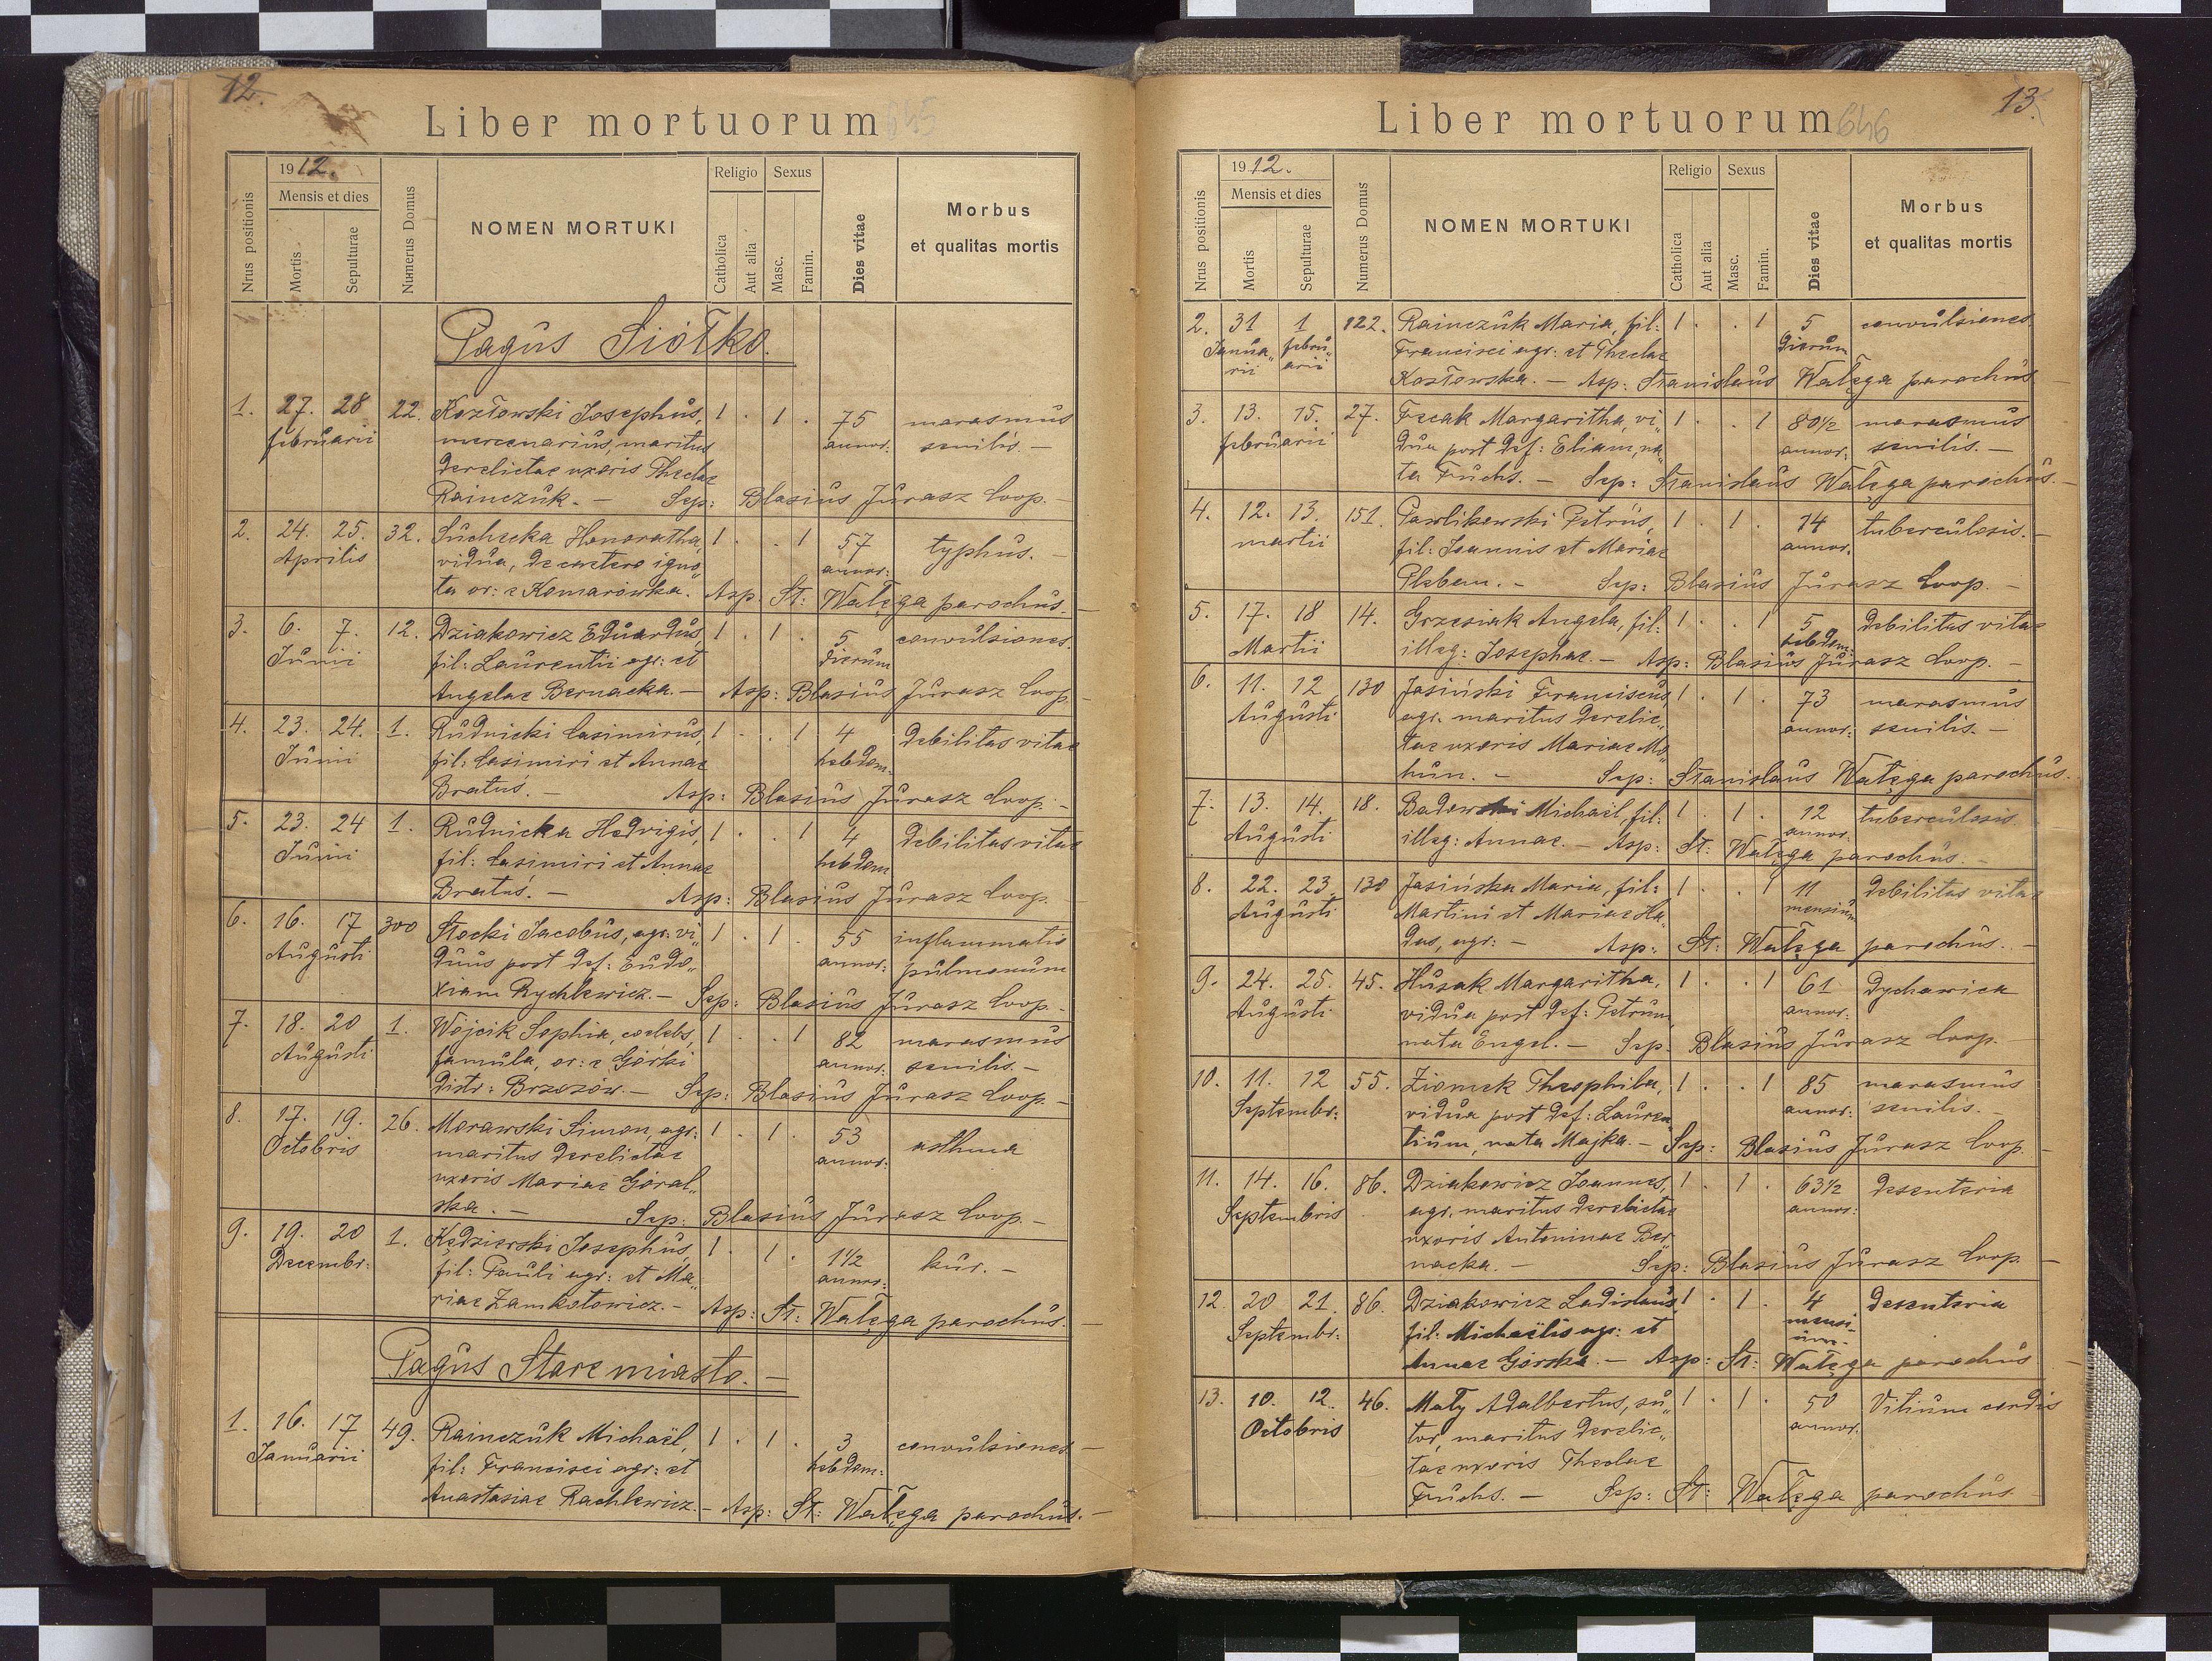 12.
Liber mortuorum 645
Nrus positionis
1912.
Mensis et dies
Mortis
Sepulturae
Numerus Domus
NOMEN MORTUKI
Religio
Catholica
Aut alia
Sexus
Masc.
Famin.
Dies vitae
Morbus
et qualitas mortis
Pagus Siółko.
1. 27. 28 22. Kozłowski Josephus, 1 . 1 . 75 marasmus
februarii mercenarius, maritus annor: senilis. —
derelictae uxoris Theclae
Rainczuk. — Sep: Blasius Jurasz Coop. —
2. 24. 25. 32. Suchecka Honoratha, 1 . . 1 57 typhus. —
Aprilis vidua, de caetero igno„ annor:
ta or: e Komarówka. Asp. St: Wałęga parochus. —
3. 6. 7. 12. Dziakowicz Eduardus, 1 . 1 . 5 convulsiones.
Junii fil: Laurentii agr: et dierum
Angelae Bernacka. — Asp: Blasius Jurasz Coop. —
4. 23. 24. 1. Rudnicki Casimirus, 1 . . 1 4 debilitas vitae
Junii fil: Casimiri et Annae hebdom.
Bratuś. — Asp: Blasius Jurasz Coop. —
5. 23. 24 1. Rudnicka Hedvigis, 1 . . 1 4 debilitas vitae
Junii fil: Casimiri et Annae hebdom
Bratuś. — Asp: Blasius Jurasz Coop. —
6. 16. 17 300 Stocki Jacobus, agr: vi„ 1 . 1 . 55 inflammatio
Augusti duus post def: Eudo„ annor: pulmonum
xiam Rychlewicz. — Sep: Blasius Jurasz Coop. —
7. 18. 20 1. Wójcik Sophia, coelebs, 1 . . 1 82 marasmus
Augusti famula, or: e Górki annor: senilis. —
distr: Brzozów. — Sep: Blasius Jurasz Coop. —
8. 17. 19. 26. Morawski Simon, agr: 1 . 1 . 53 asthma
Octobris maritus derelictae annor:
uxoris Mariae Góral„
ska. — Sep: Blasius Jurasz Coop. —
9. 19. 20 1. Kędzierski Josephus, 1 . 1 . 1 1/2 kur. —
Decembr: fil: Pauli agr: et Ma„ annor:
riae Zamkotowicz. — Asp: St: Wałęga parochus. —
Pagus Stare miasto. —
1. 16. 17 49. Rainczuk Michaël, 1 . 1 . 3 convulsiones —
Januarii fil: Francisci agr: et hebdom:
Anastasiae Rachlewicz. — Asp: St: Wałęga parochus. —
13.
Liber mortuorum 646
Nrus positionis
1912.
Mensis et dies
Mortis
Sepulturae
Numerus Domus
NOMEN MORTUKI
Religio
Catholica
Aut alia
Sexus
Masc.
Famin.
Dies vitae
Morbus
et qualitas mortis
2. 31 1 122. Rainczuk Maria, fil: 1 . . 1 5 convulsiones
Janua„ febru„ Francisci agr: et Theclae dierum
rii arii Kozłowska. — Asp: Stanislaus Wałęga parochus —
3. 13. 15. 27. Frcak Margaritha, vi„ 1 . . 1 80 1/2 marasmus
februarii dua post def: Eliam, na„ annor: senilis. —
ta Fuchs. — Sep: Stanislaus Wałęga parochus. —
4. 12. 13. 151. Pawlikowski Petrus, 1 . 1 . 14 tuberculosis. —
martii fil: Joannis et Mariae annor.
Pleban. — Sep: Blasius Jurasz Coop. —
5. 17. 18 14. Grzesiak Angela, fil: 1 . . 1 5 debilitas vitae
Martii illeg: Josephae. — hebdom:
Asp: Blasius Jurasz Coop. —
6. 11. 12 130 Jasiński Franciscus, 1 . 1 . 73 marasmus
Augusti agr. maritus derelic„ annor: senilis. —
tae uxoris Mariae Mo„
hun. — Sep: Stanislaus Wałęga parochus.
7. 13. 14. 18. Badowski Michaël, fil: 1 . 1 . 12 tuberculosis
Augusti illeg: Annae. — annor.
Asp: St: Wałęga parochus. —
8. 22. 23. 130 Jasińska Maria, fil: 1 . . 1 11 debilitas vitae
Augusti Martini et Mariae Ha„ mensium
das, agr: — Asp: St: Wałęga parochus. —
9. 24. 25. 45. Husak Margaritha, 1 . . 1 61 dychawica
Augusti vidua post def: Petrum, annor:
nata Engel. — Sep. Blasius Jurasz Coop. —
10. 11. 12 55. Ziomek Theophila, 1 . . 1 85 marasmus
Septembr: vidua post def: Lauren„ annor: senilis. —
tium, nata Majka. — Sep: Blasius Jurasz Coop. —
11. 14. 16. 86. Dziakowicz Joannes, 1 . 1 . 63 1/2 desenteria
Septembris agr. maritus derelictae annor:
uxoris Antoninae Ber„
nacka. — Sep: Blasius Jurasz Coop. —
12. 20 21. 86. Dziakowicz Ladislaus 1 . 1 . 4 desenteria
Septembr: fil: Michaëlis agr: et mensi„
um.
Annae Górska. — Asp: St: Wałęga parochus —
13. 10. 12. 46. Mały Adalbertus, su„ 1 . 1 . 50 Vitium cordis
Octobris tor, maritus derelic„ annor.
tae uxoris Theclae
Fuchs. — Sep: St: Wałęga parochus —